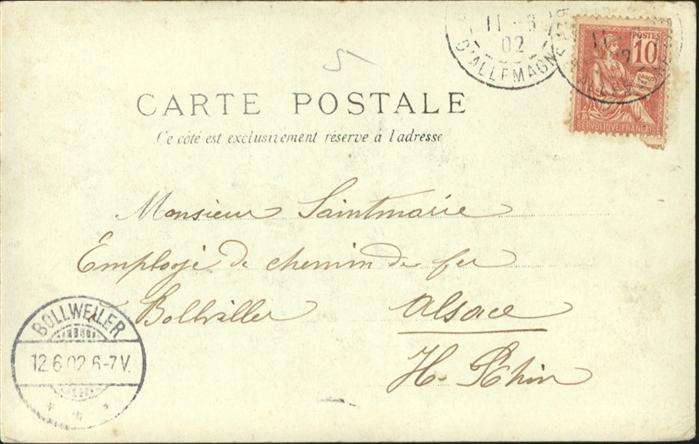 11 - 6
02
D'ALLEMAGNE
POSTES
10
CARTE POSTALE
Ce côté est exclusivement réservé à l'adresse
Monsieur Saintmarie
Employé de chemin de fer
Bollviller Alsace
H. Rhin
BOLLWEILER
12.6.02.6-7V.